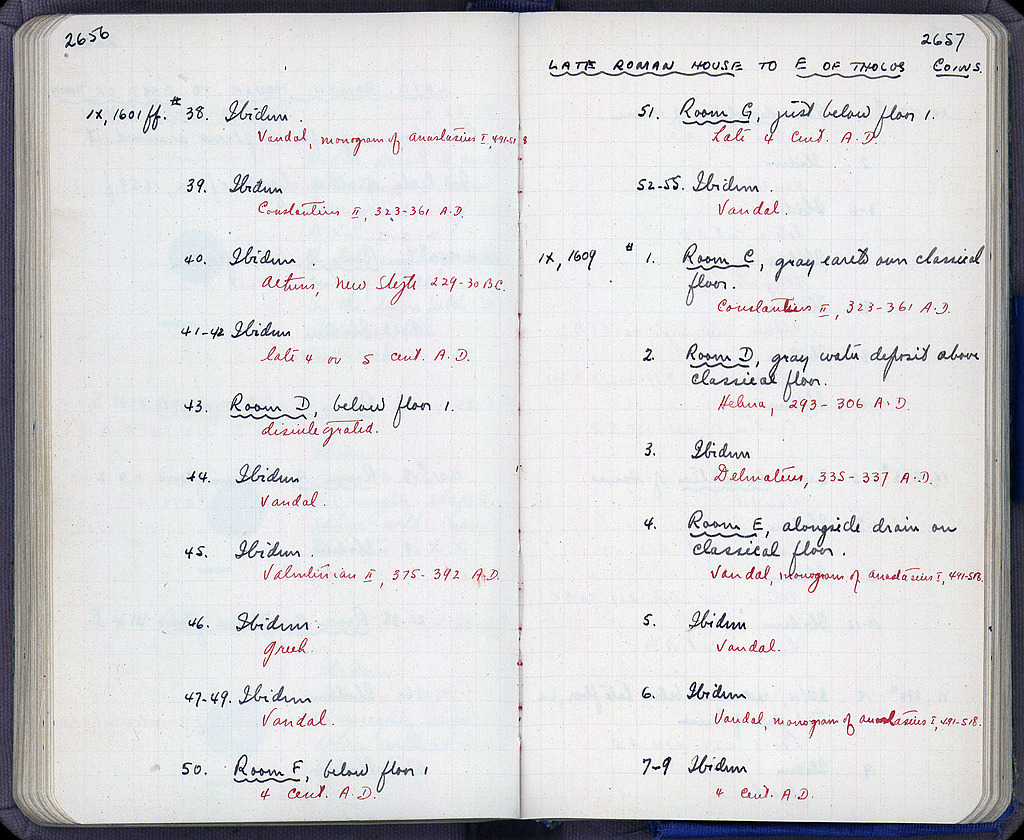 2656
IX, 1601 ff. # 38. Ibidum.
Vandal, monogram of Anastasius I, 491-518
39. Ibidum
Constantius II, 323-361 A.D.
40. Ibidum
Athens, New Style 229-30 B.C.
41-42 Ibidum
late 4 or 5 cent. A.D.
43. Room D, below floor 1.
disintegrated.
44. Ibidum
Vandal.
45. Ibidum.
Valentinian II, 375-392 A.D.
46. Ibidum
Greek.
47-49. Ibidum
Vandal.
50. Room F, below floor 1
4 cent. A.D.
2657
LATE ROMAN HOUSE TO E OF THOLOS COINS.
51. Room G, just below floor 1.
Late 4 cent. A.D.
52-55. Ibidum.
Vandal.
IX, 1609 # 1. Room C, gray earth over classical
floor.
Constantius II, 323-361 A.D.
2. Room D, gray water deposit above
classical floor.
Helena, 293-306 A.D.
3. Ibidum
Delmatius, 335-337 A.D.
4. Room E, alongside drain on
classical floor.
Vandal, monogram of Anastasius I, 491-518.
5. Ibidum
Vandal.
6. Ibidum
Vandal, monogram of Anastasius I, 491-518.
7-9 Ibidum
4 cent. A.D.